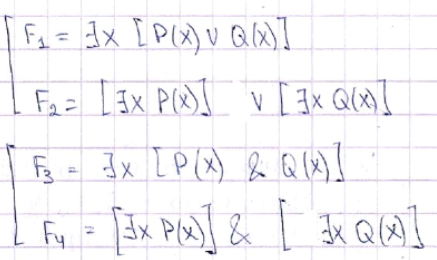 F₁ = ∃x [P(x) ∨ Q(x)]
F₂ = [∃x P(x)] ∨ [∃x Q(x)]
F₃ = ∃x [P(x) & Q(x)]
F₄ = [∃x P(x)] & [ ∃x Q(x)]